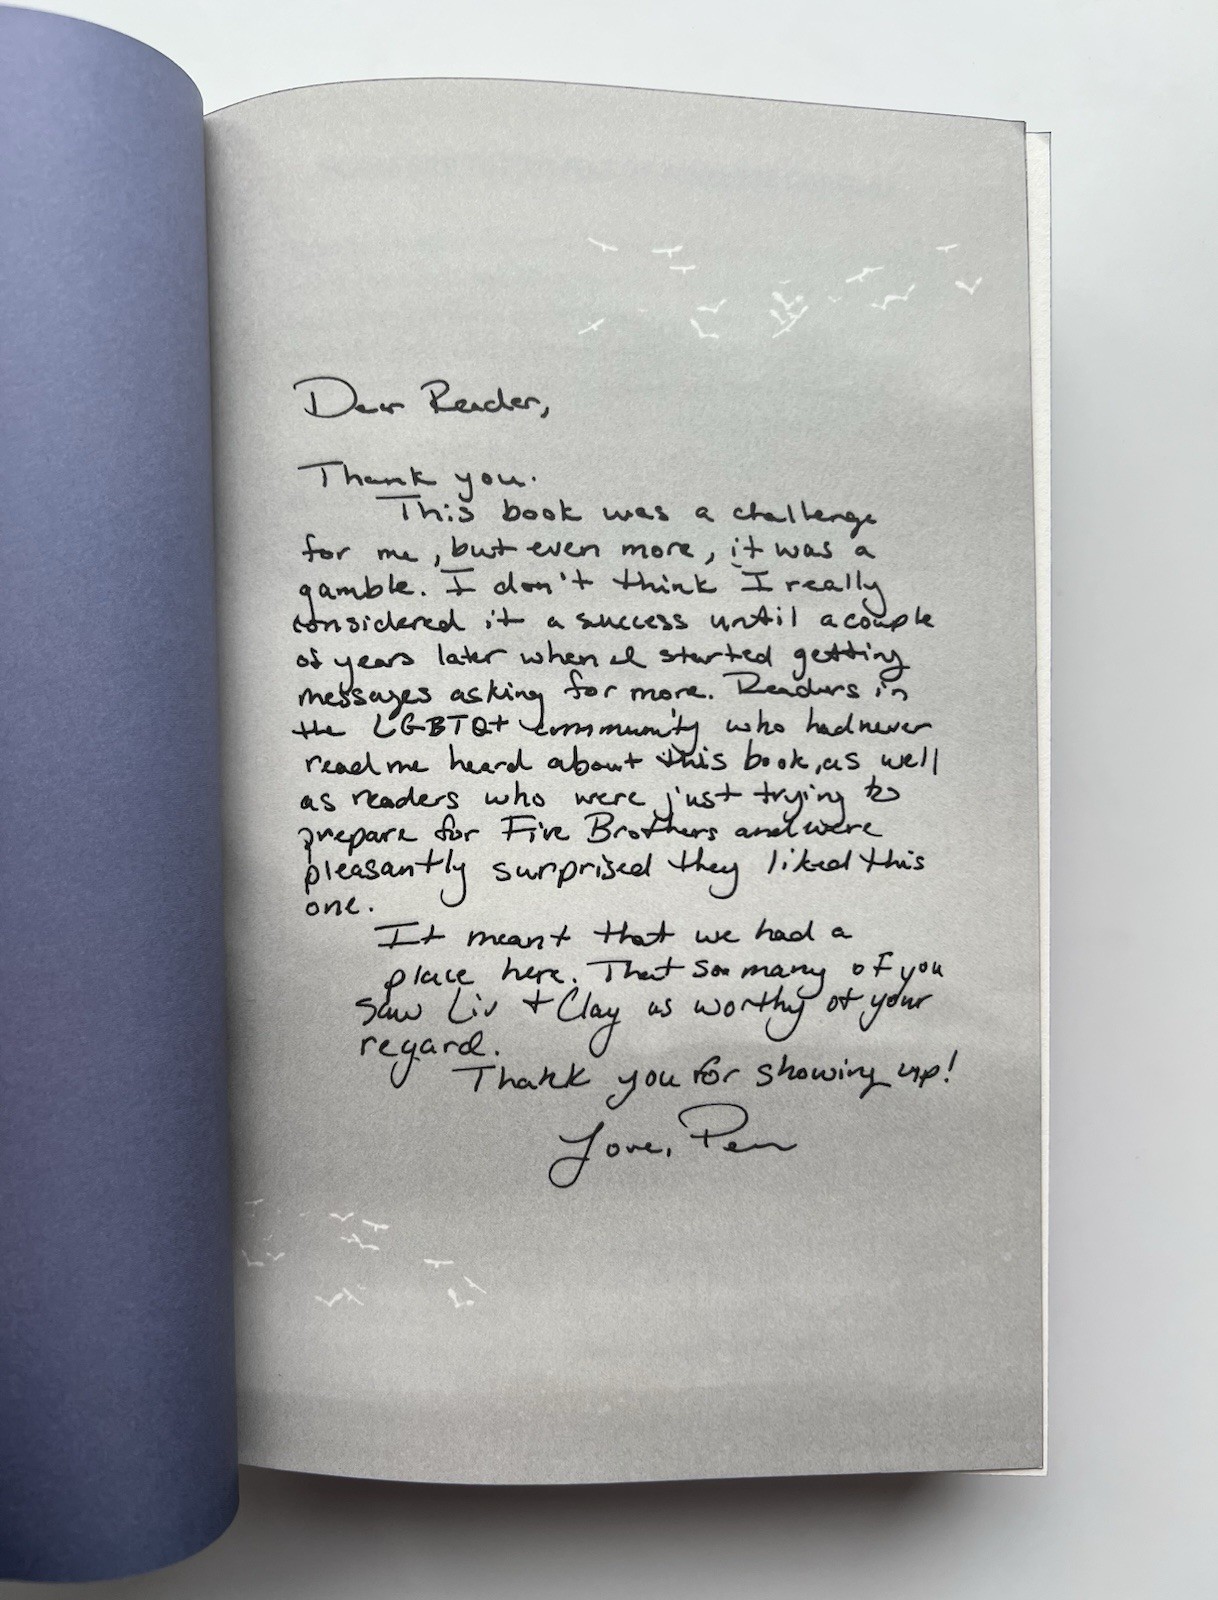 Dear Reader,
Thank you.
This book was a challenge
for me, but even more, it was a
gamble. I don't think I really
considered it a success until a couple
of years later when I started getting
messages asking for more. Readers in
the LGBTQ+ community who had never
read me heard about this book, as well
as readers who were just trying to
prepare for Five Brothers and were
pleasantly surprised they liked this
one.
It meant that we had a
place here. That so many of you
saw Liv + Clay as worthy of your
regard.
Thank you for showing up!
Love, Pen